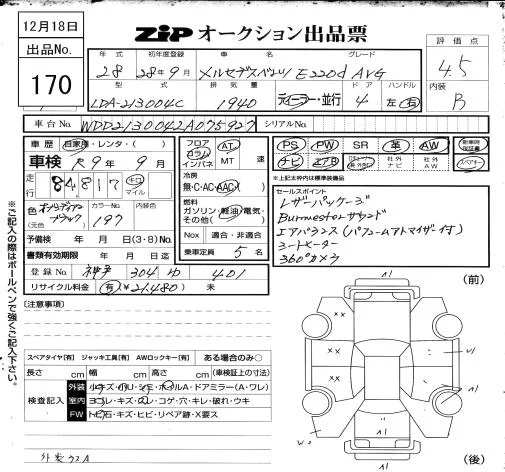 12月18日
出品No.
170
ZIP オークション出品票
年式 初年度登録 車名 グレード
28 28年9月 メルセデスベンツ E220d AVG
型式 排気量 ドア ハンドル
LDA-213004C 1940 ディーラー・並行 4 左・右
評価点
4.5
内装
B
車台No. WDD2130042A075927 シリアルNo.
車歴 自家用・レンタ・( )
車検 R9年9月
走行 84,817 キロ マイル
色 オブシディアンブラック (元色) カラーNo. 197 内装色
予備検 年 月 日(3・8)No.
書類有効期限 年 月 日迄
登録No. 神戸 304 ゆ 401
リサイクル料金 有 ¥21,480) 未
フロア コラム インパネ AT MT 速
冷房
無・C・AC・AAC
燃料
ガソリン・軽油・電気・その他( )
Nox 適合・非適合
乗車定員 5 名
PS PW SR 革 AW
ナビ エアB 社外ナビ 社外AW スペアキー
*上記太枠内は標準装備品
セールスポイント
レザーパッケージ
Burmesterサウンド
エアバランス(パフュームアトマイザー付)
シートヒーター
360°カメラ
[注意事項]
スペアタイヤ[有] ジャッキ工具[有] AWロックキー[有] ある場合のみ○
長さ cm 幅 cm 高さ cm (車検証上の寸法)
検査記入
外装 小キズ・小U・シミ・ホイルA・ドアミラー(A・ワレ)
室内 ヨゴレ・キズ・スレ・コゲ・穴・キレ・破れ・ウキ
FW トビ石・キズ・ヒビ・リペア跡・X要ス
外装ウスA
※ご記入の際はボールペンで強くご記入下さい。
(前)
(後)